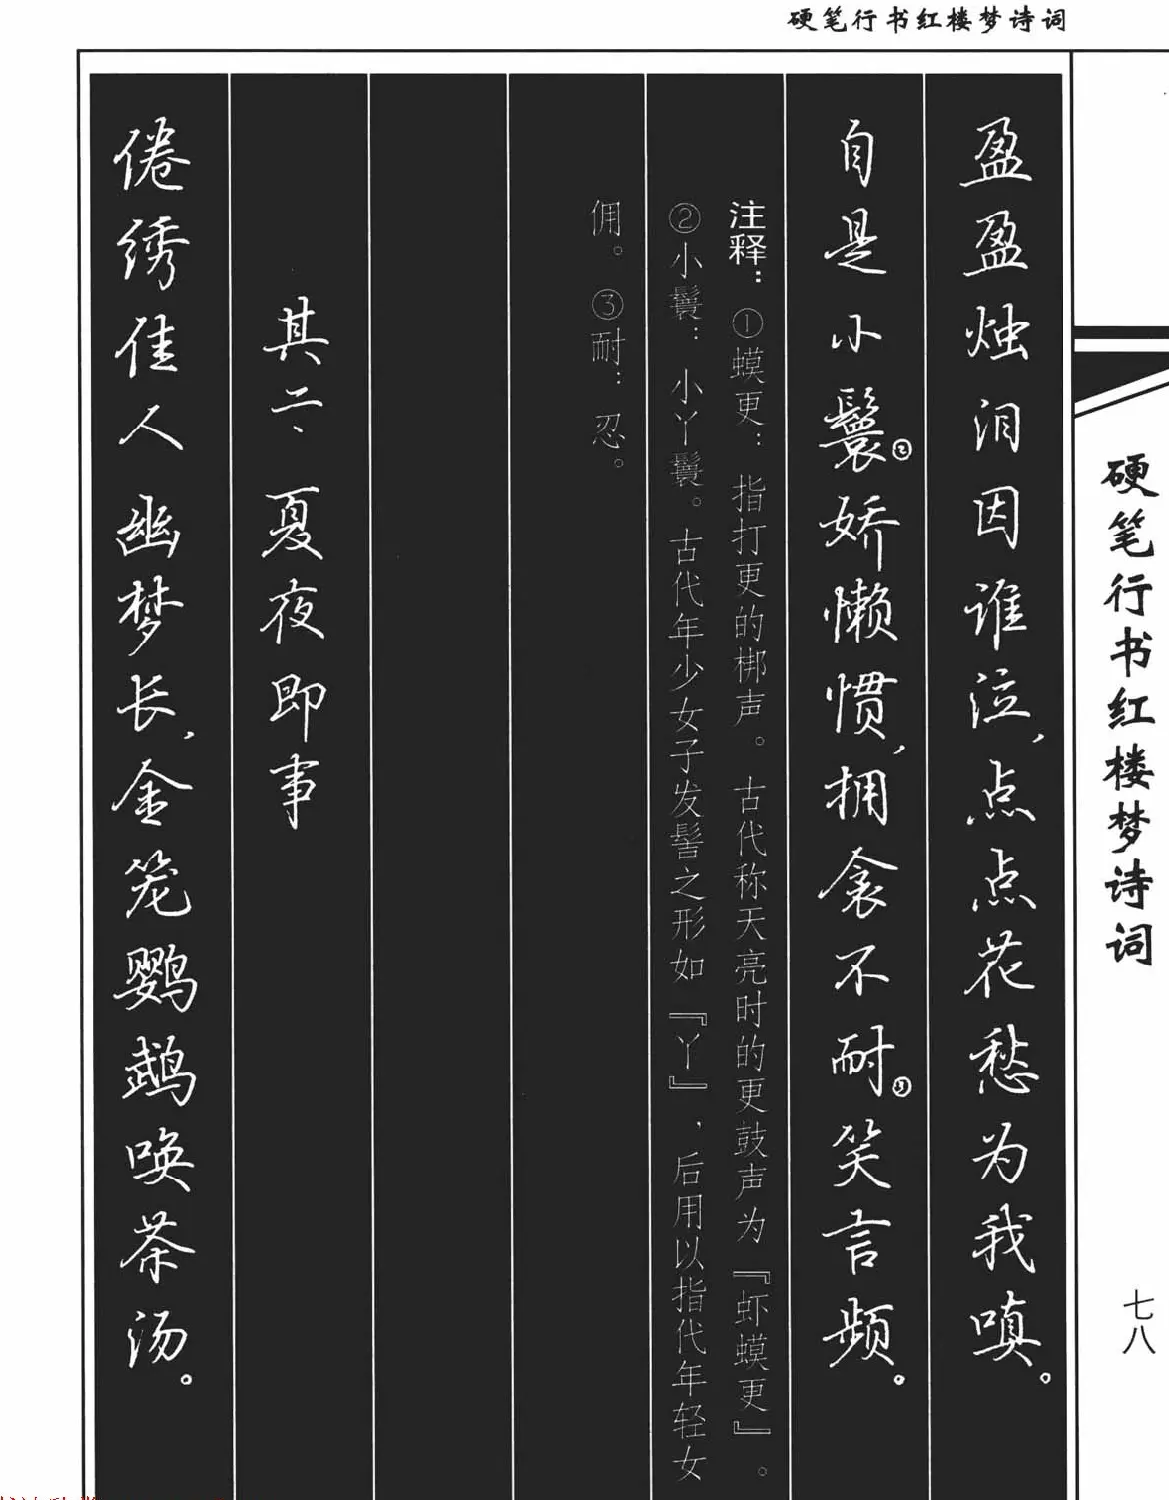 硬笔行书红楼梦诗词
硬笔行书红楼梦诗词
七八
盈盈烛泪因谁泣，点点花愁为我嗔。
自是小鬟②娇懒惯，拥衾不耐③笑言频。
注释：①蟆更：指打更的梆声。古代称天亮时的更鼓声为『虾蟆更』。
②小鬟：小丫鬟。古代年少女子发髻之形如『丫』，后用以指代年轻女
佣。③耐：忍。
其二、夏夜即事
倦绣佳人幽梦长，金笼鹦鹉唤茶汤。